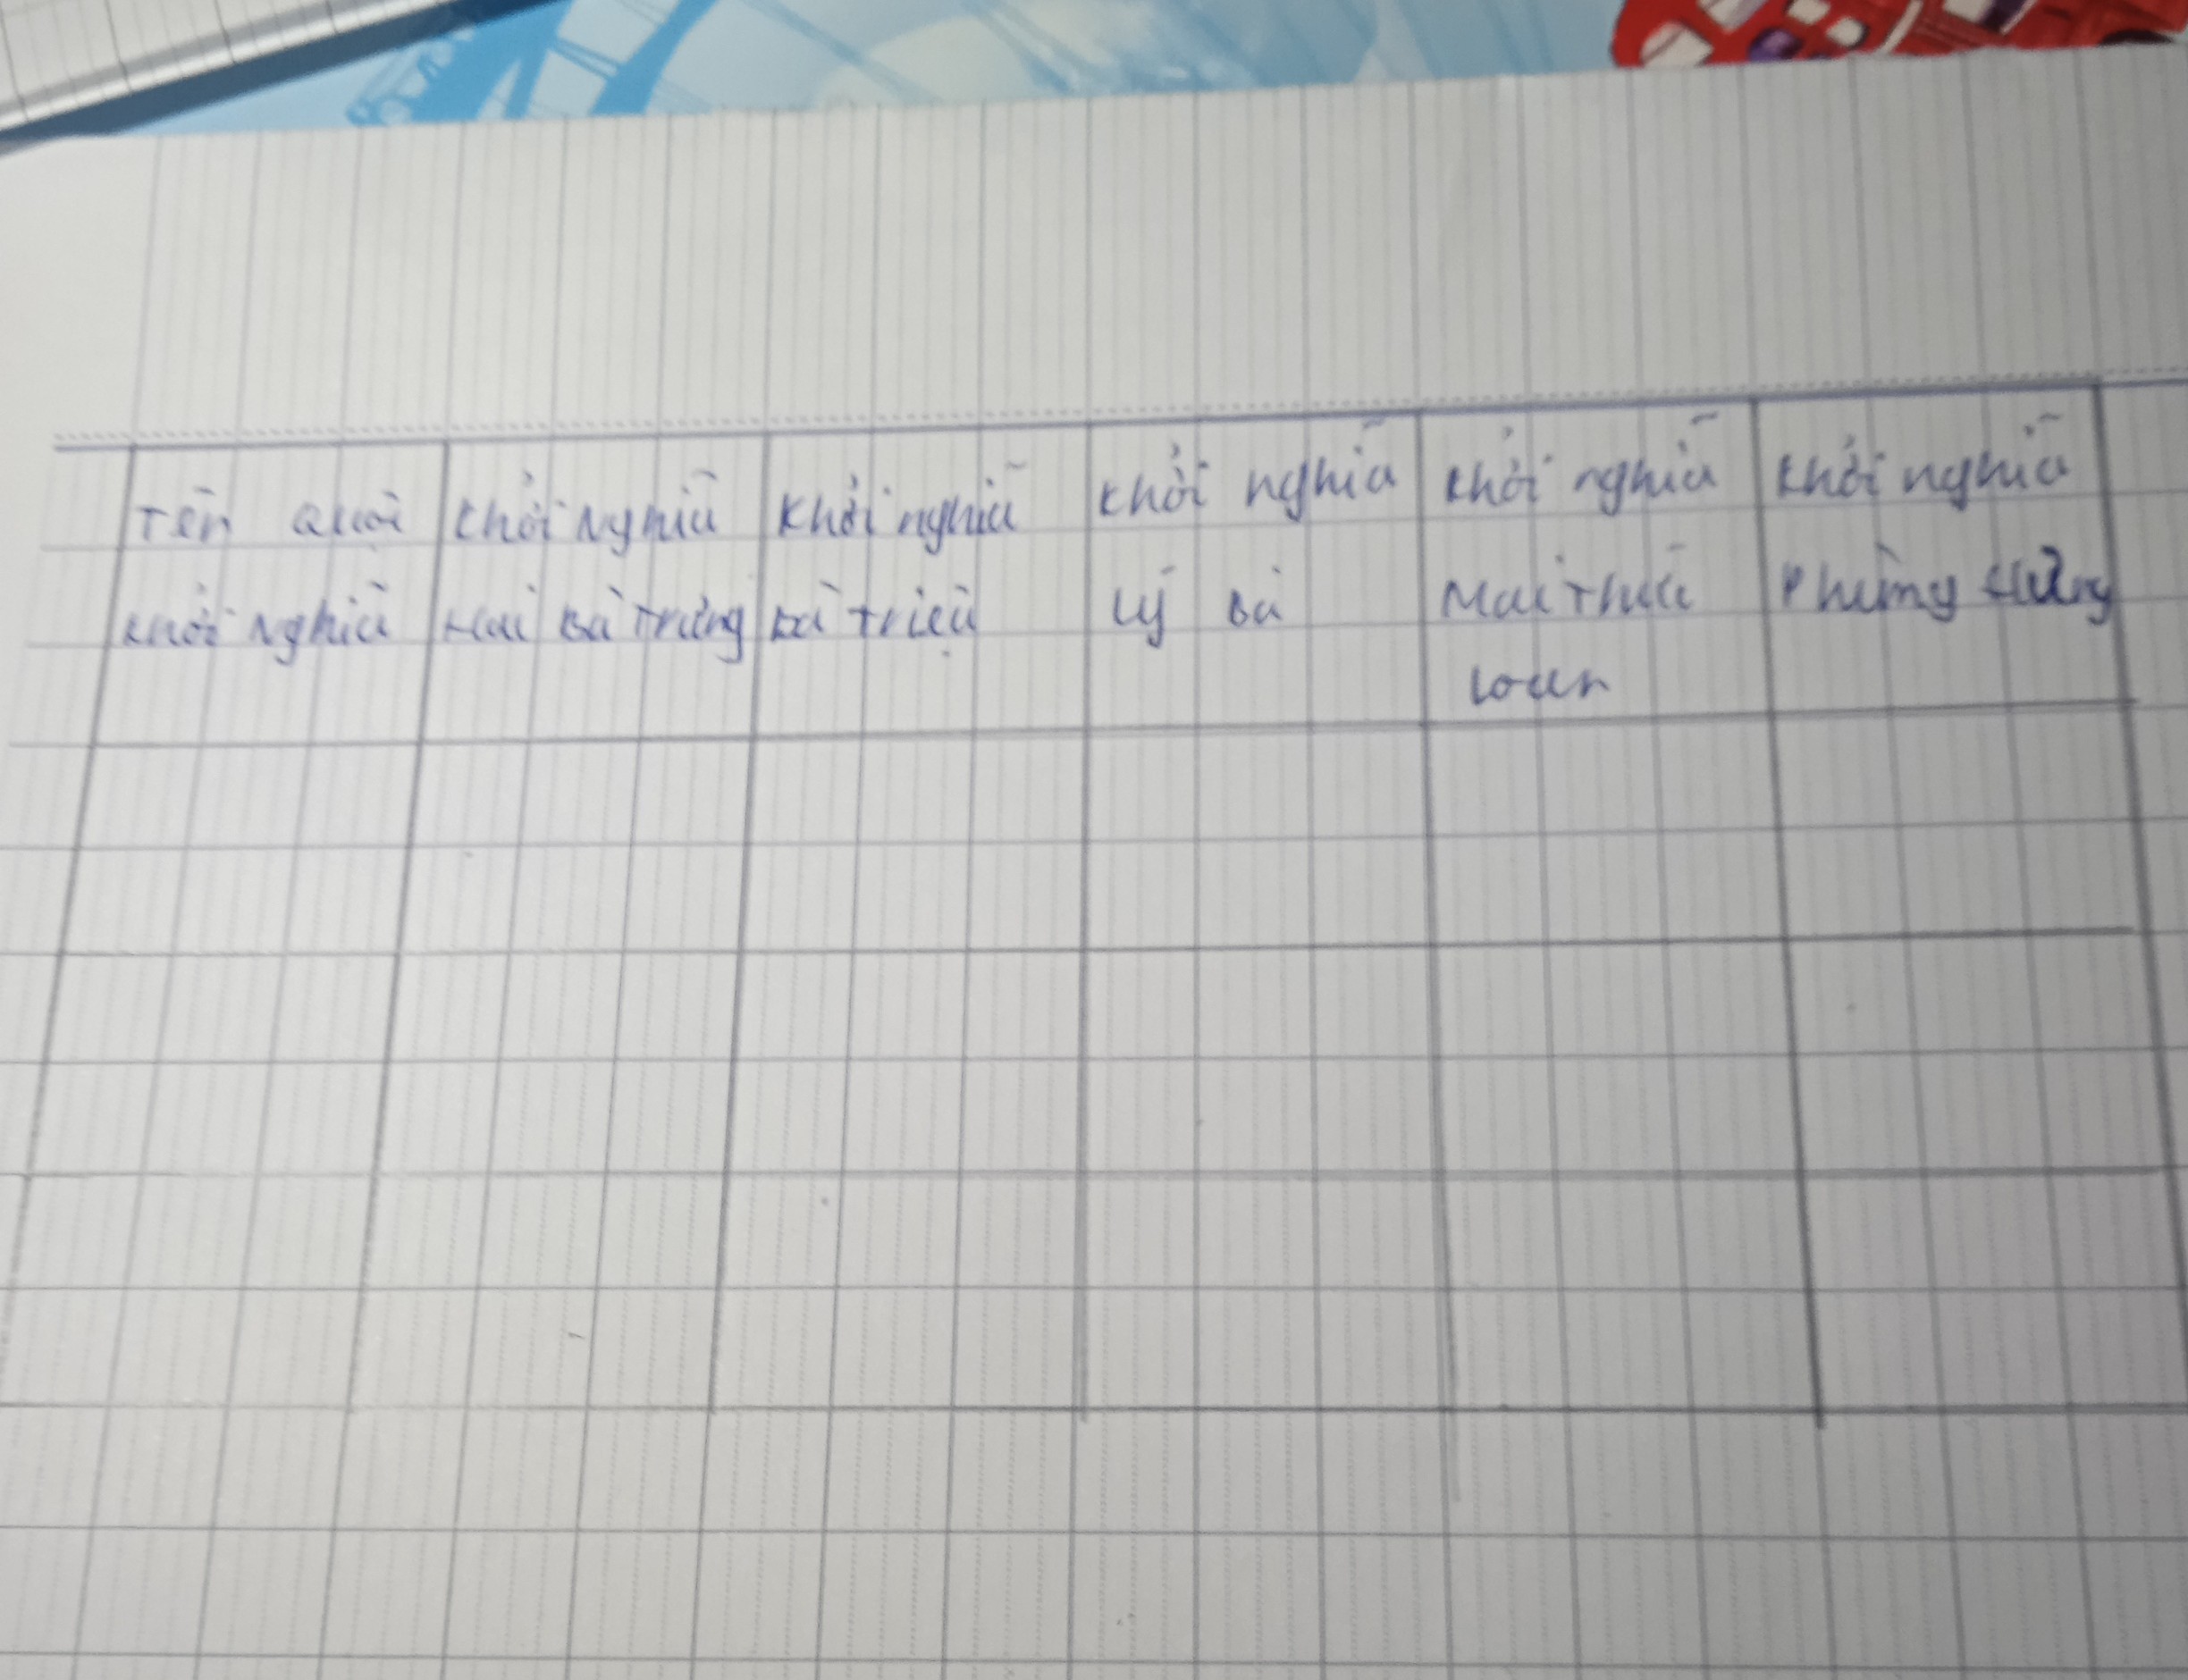 Tên cuộc
khởi nghĩa
khởi nghĩa
Hai Bà Trưng
khởi nghĩa
Bà Triệu
khởi nghĩa
Lý Bí
khởi nghĩa
Mai Thúc
Loan
khởi nghĩa
Phùng Hưng